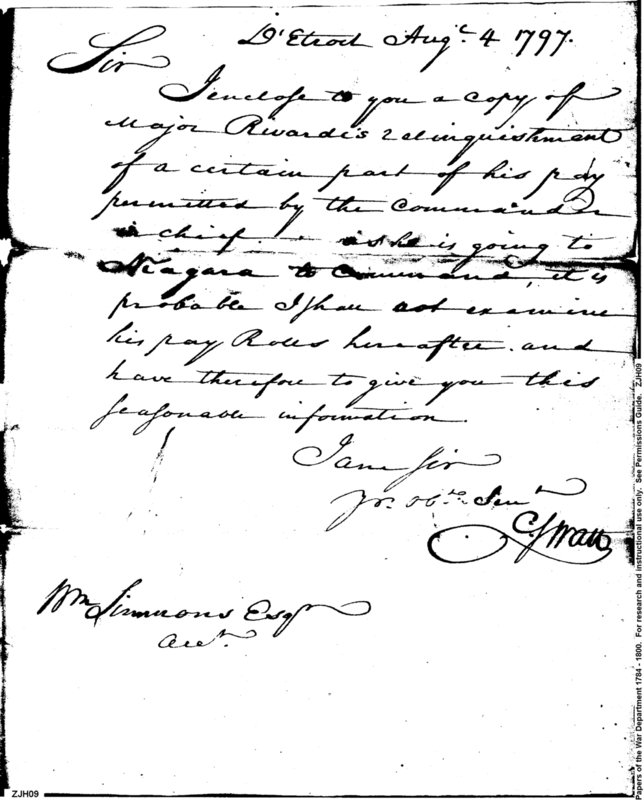 D'Etroit Augt. 4 1797.
Sir
I enclose to you a copy of
Major Rivardi's relinquishment
of a certain part of his pay
permitted by the Commander
in chief. as he is going to
Niagara to Command, it is
probable I shall not examine
his pay Roles hereafter. and
have therefore to give you this
seasonable information.
I am Sir
Yr. Obt. Servt.
C Swan
Wm Simmons Esqr
Acct.
ZJH09
Papers of the War Department 1784 - 1800. For research and instructional use only. See Permissions Guide. ZJH09